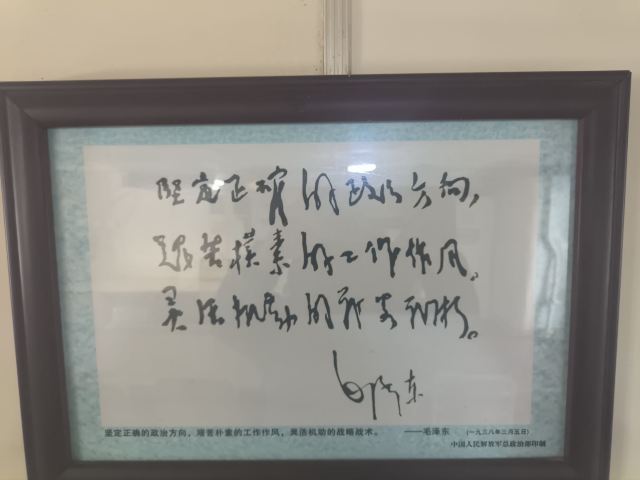 坚定正确的政治方向，
艰苦模素的工作作风。
灵活机动的战略战术。
毛泽东
坚定正确的政治方向，艰苦朴素的工作作风，灵活机动的战略战术。 ——毛泽东 (一九三八年三月五日)
中国人民解放军总政治部印制